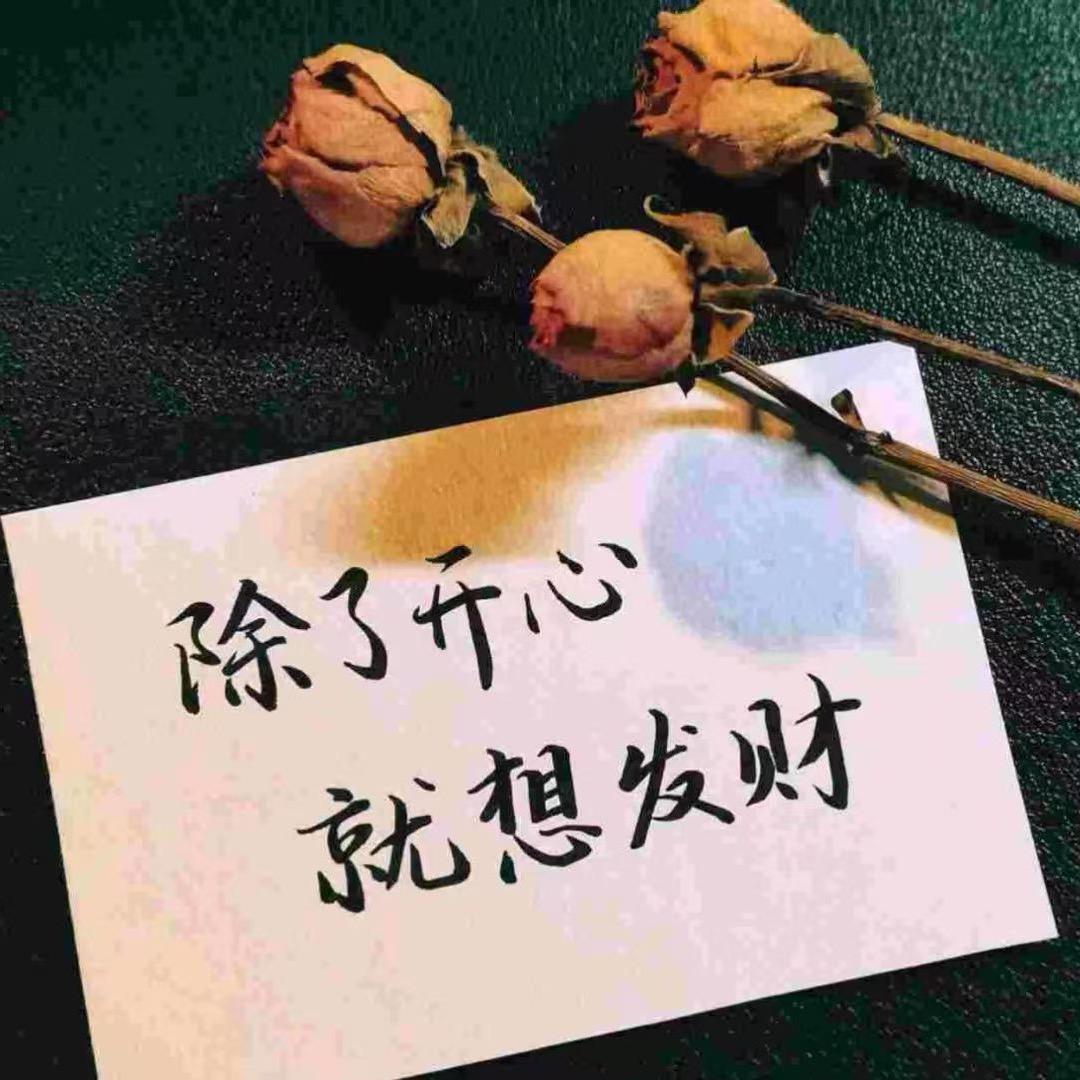 除了开心
就想发财